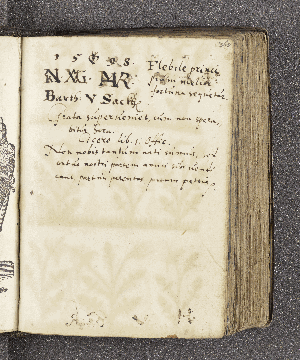 1 5 9 8
Flebile princi
pium melior
fortuna sequetur.
Grata superveniet, quæ non spera,
bitur hora.
Cicero lib. 1. Offic.
Non nobis tantum nati sumus, sed
ortus nostri partem amici sibi vendi
cant, partem parentes partem patria,